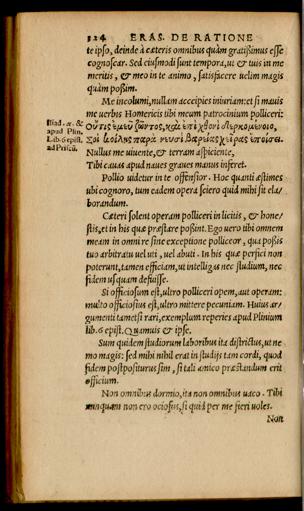 324 ERAS. DE RATIONE
te ipso, deinde à cæteris omnibus quàm gratißimus esse
cognoscar. Sed eiusmodi sunt tempora, ut & tuis in me
meritis, & meo in te animo, satisfacere uelim magis
quàm poßim.
Me incolumi, nullam accipies iniuriam: et si mauis
me uerbis Homericis tibi meum patrocinium polliceri:
Iliad. α. &
apud Plin.
Lib. 6 epist.
ad Priscũ.
Οὔτις ἐμεῦ ζῶντος, καὶ ἐπὶ χθονὶ δερκομένοιο,
Σοὶ κοίλῃς παρὰ νευσὶ βαρείας χεῖρας ἐποίσει.
Nullus me uiuente, & terram aspiciente,
Tibi cauas apud naues graues manus inferet.
Pollio uidetur in te offensior. Hoc quanti æstimes
ubi cognoro, tum eadem opera sciero quid mihi sit ela/
borandum.
Cæteri solent operam polliceri in licitis, & hone/
stis, et in his quæ præstare poßint. Ego uero tibi omnem
meam in omni re sine exceptione polliceor, qua poßis
tuo arbitratu uel uti, uel abuti. In his quæ perfici non
poterunt, tamen efficiam, ut intelligas nec studium, nec
fidem usquam defuisse.
Si officiosum est, ultro polliceri opem, aut operam:
multo officiosius est, ultro mittere pecuniam. Huius ar/
gumenti tametsi rari, exemplum reperies apud Plinium
lib. 6 epist. Quamuis & ipse.
Sum quidem studiorum laboribus ita districtus, ut ne
mo magis: sed mihi nihil erat in studijs tam cordi, quod
fidem postpositurus sim, si tali amico præstandum erit
officium.
Non omnibus dormio, ita non omnibus uaco. Tibi
nunquam non ero ociosus, si quid per me fieri uoles.
Non